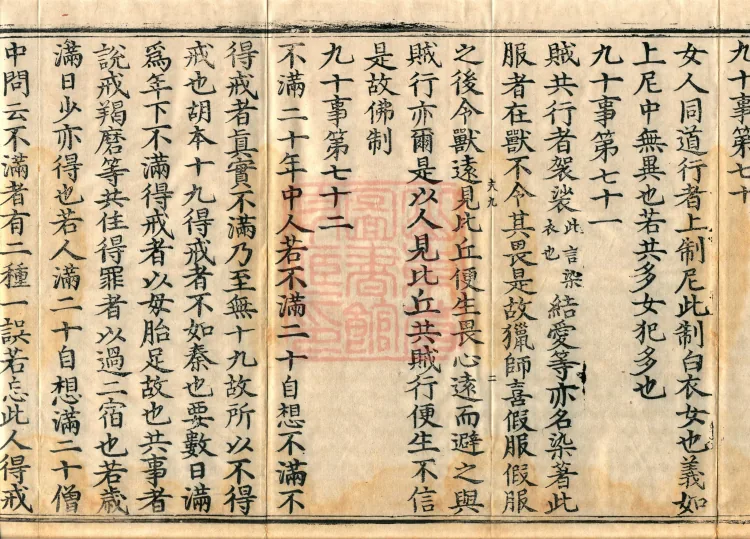 九十事第七十
女人同道行者上制尼此制白衣女也義如
上尼中無異也若共多女犯多也
九十事第七十一
賊共行者袈裟此言染衣也結愛等亦名染著此
服者在獸不令其畏是故獵師喜假服假服
二
之後令獸遠見比丘便生畏心遠而避之與
賊行亦爾是以人見比丘共賊行便生不信
是故佛制
九十事第七十二
不滿二十年中人若不滿二十自想不滿不
得戒者眞實不滿乃至無十九故所以不得
戒也胡本十九得戒者不如秦也要數日滿
爲年下不滿得戒者以母胎足故也共事者
說戒羯磨等共住得罪者以過二宿也若歲
滿日少亦得也若人滿二十自想滿二十僧
中問云不滿者有二種一誤若忘此人得戒